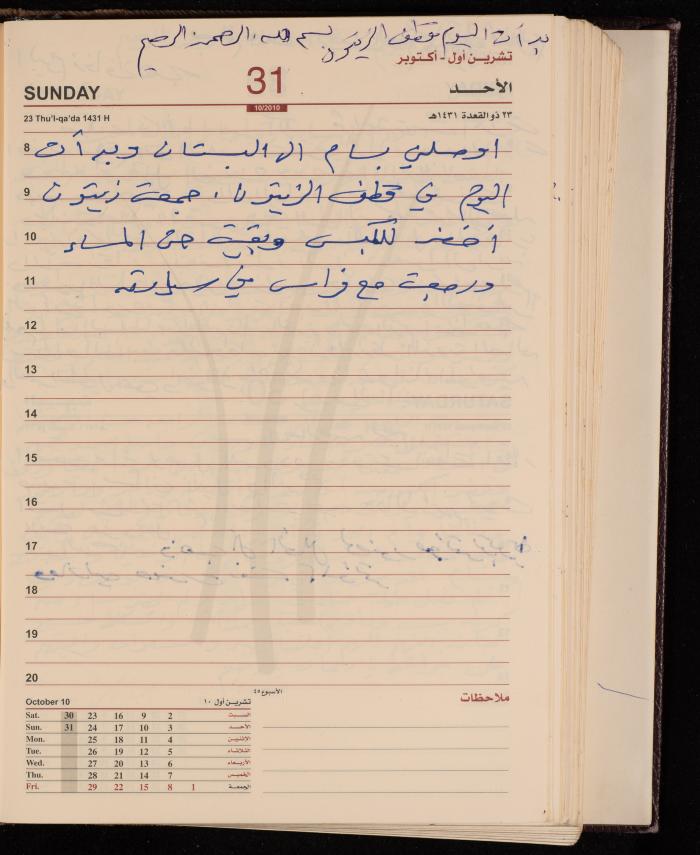 بدأت اليوم بقطف الزيتون
بسم الله الرحمن الرحيم
تشرين أول - أكتوبر
31
SUNDAY
الأحـــد
10/2010
23 Thu'l-qa'da 1431 H
٢٣ ذو القعدة ١٤٣١هـ
8 اوصلني بسام الى البستان وبدأت
9 اليوم في قطف الزيتون، جمعت زيتون
10 أخضر للكبس وبقيت حتى المساء
11 ورجعت مع فراس في سيارته
12
13
14
15
16
17
18
19
20
الأسبوع ٤٥
October 10 تشرين أول ١٠
ملاحظات
Sat. 30 23 16 9 2 السبت
Sun. 31 24 17 10 3 الأحد
Mon. 25 18 11 4 الإثنين
Tue. 26 19 12 5 الثلاثاء
Wed. 27 20 13 6 الأربعاء
Thu. 28 21 14 7 الخميس
Fri. 29 22 15 8 1 الجمعة